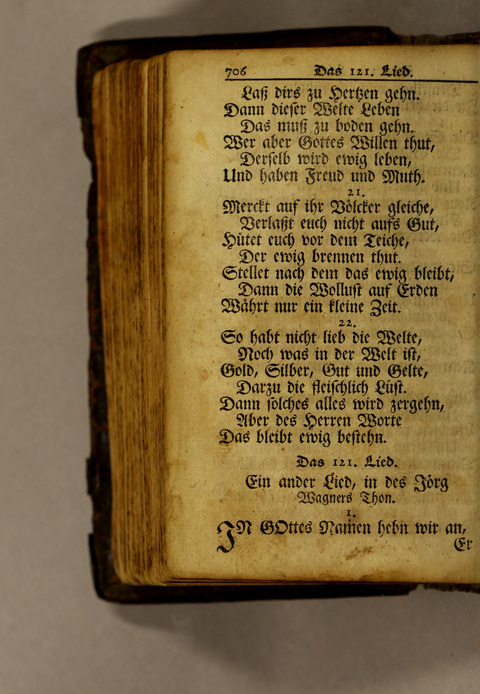 706 Das 121. Lied.
Laß dirs zu Hertzen gehn.
Dann dieser Welte Leben
Das muß zu boden gehn.
Wer aber Gottes Willen thut,
Derselb wird ewig leben,
Und haben Freud und Muth.
21.
Merckt auf ihr Völcker gleiche,
Verlaßt euch nicht aufs Gut,
Hütet euch vor dem Teiche,
Der ewig brennen thut.
Stellet nach dem das ewig bleibt,
Dann die Wollust auf Erden
Währt nur ein kleine Zeit.
22.
So habt nicht lieb die Welte,
Noch was in der Welt ist,
Gold, Silber, Gut und Gelte,
Darzu die fleischlich Lüst.
Dann solches alles wird zergehn,
Aber des Herren Worte
Das bleibt ewig bestehn.
Das 121. Lied.
Ein ander Lied, in des Jörg
Wagners Thon.
1.
IN GOttes Namen hebn wir an,
Er